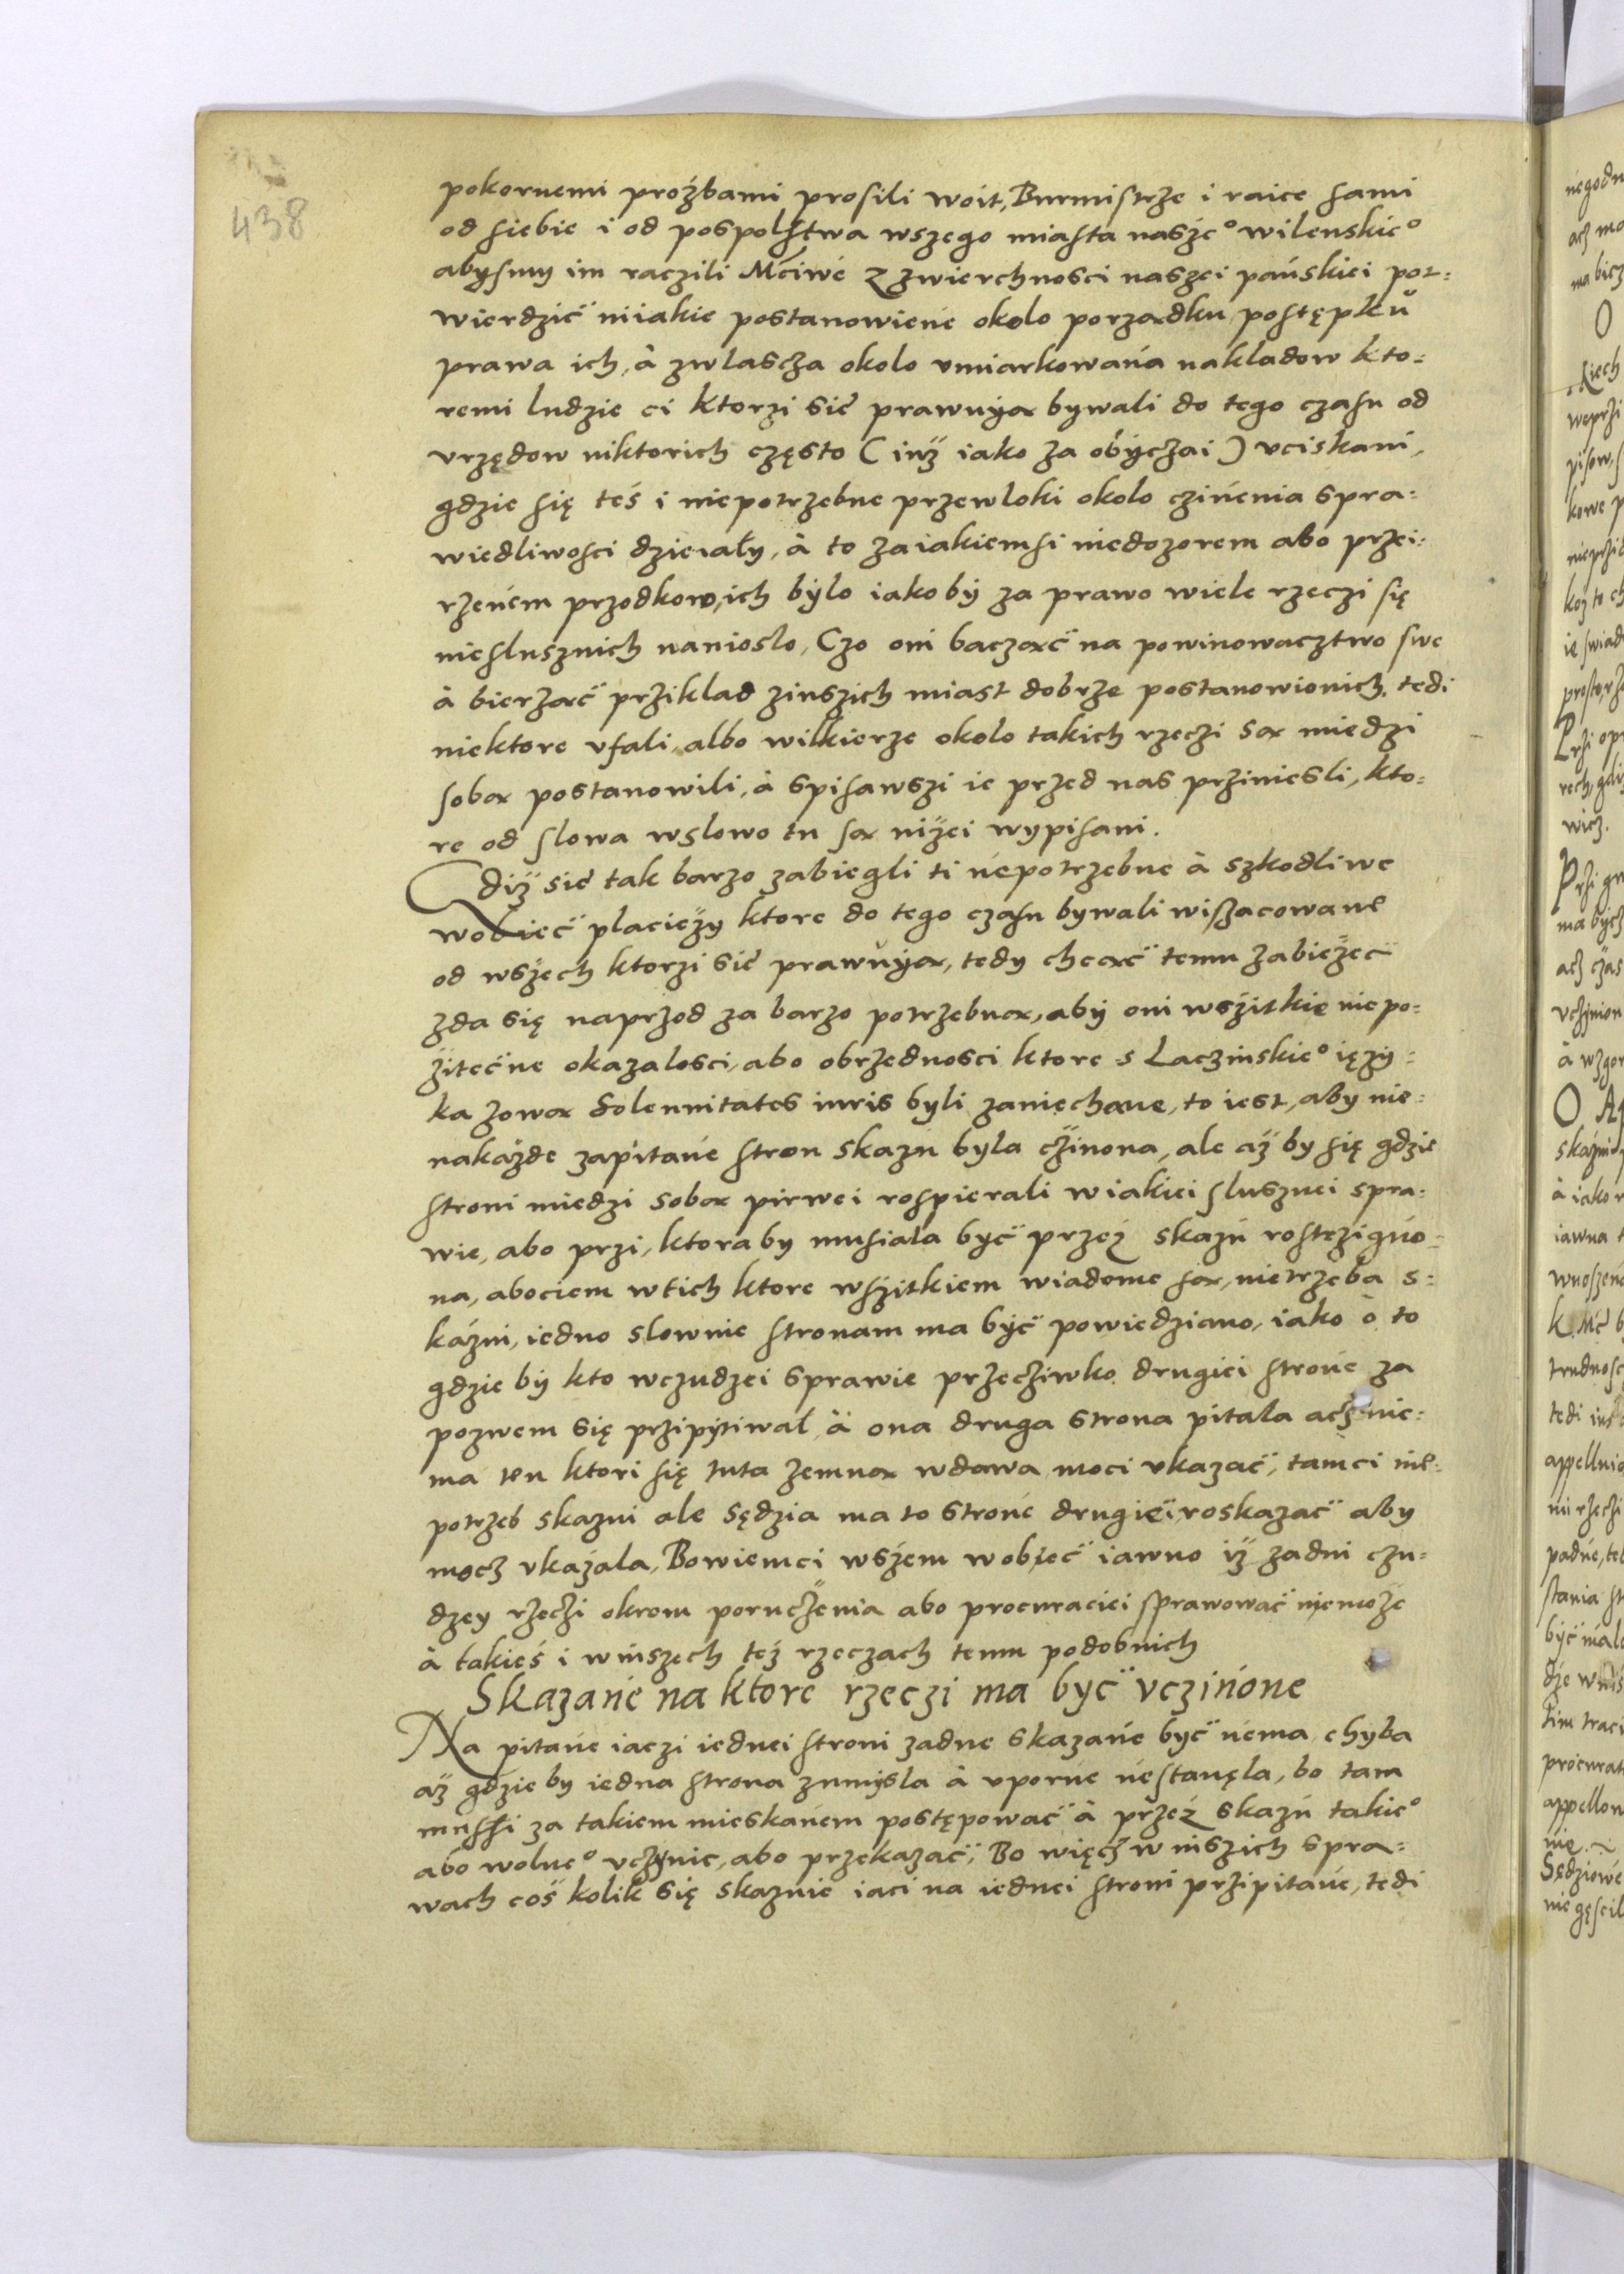 438
pokornemi proźbami prosili woit, Burmistrze i raice sami
od siebie i od pospolstwa wszego miasta naszeº wilenskieº
abysmy im raczili Mćiwé z zwierchnosci naszei pańskiei pot-
wierdzić niiakie postanowiene okolo porzadku postępku
prawa ich, à zwlascza okolo vmiarkowańa nakladow kto-
remi ludzie ci ktorzi sie prawuyą bywali do tego czasu od
vrzędow niktorich często (iuż iako za obyczai) vciskani,
gdzie się teś i niepotrzebne przewloki okolo czińenia spra-
wiedliwosci dzieiały, à to zaiakiemsi niedozorem abo przei-
rzeńem przodkow, ich bylo iakoby za prawo wiele rzeczi się
niesłusznich naniosło, Czo oni bacząć na powinowacztwo swe
à bierząć prziklad zinszich miast dobrze postanowionich, tedi
niektore vfali albo wilkierze okolo takich rzeczi są miedzi
sobą postanowili, à spisawszi ie przed nas prziniesli, kto-
re od slowa wslowo tu są niżei wypisani.
Gdiż sie tak barzo zabiegli ti ńepotrzebne à szkodliwe
wobieć placieży ktore do tego czasu bywali wiszacowane
od wszech ktorzi sie prawuyą, tedy chcąć temu zabieżeć
zda się naprzod za barzo potrzebną, aby oni wszitkie niepo-
żiteczne okazalosci, abo obrzednosci ktore s Laczinskieº ięzy-
ka zową Solennitates iuris byli zaniechane, to iest, aby nie-
nakażde zapitańe stron skazń byla czinona, ale aż by się gdzie
stroni miedzi sobą pirwei rospierali wiakiei slusznei spra-
wie, abo przi, ktora by musiała być przez skazń rostrzignio-
na, abociem wtich ktore wszitkiem wiadome są, nietrzeba s-
kaźni, iedno slownie stronam ma być powiedziano, iako ò to
gdzie by kto wczudzei sprawie przecziwko drugiei strońe za
pozwem się przipytiwał à ona druga strona pitala acz nie-
ma ten ktori się tuta zemną wdawa moci vkazać, tamci nie-
potrzeb skazni ale sędzia ma to strońe drugiei roskazać aby
mocz vkazala, Bowiemci wszem wobieć iawno iż zadni czu-
dzey rzeczi okrom poruczenia abo procuraciei sprawować niemoże
à takieś i winszech też rzeczach temu podobnich
Skazanie na ktore rzeczi ma być vczinione
Na pitańe iaczi iednei stroni zadne skazańe być ńema chyba
aż gdzie by iedna strona zumysla à vporńe ńestanęla, bo tam
mussi za takiem mieskańem postępować à przez skazń takieº
abo wolneº vczynic, abo przekazać, Bo więcz w inszich spra-
wach coś kolik się skaznie iaci na iednei stroni przipitańe, tedi